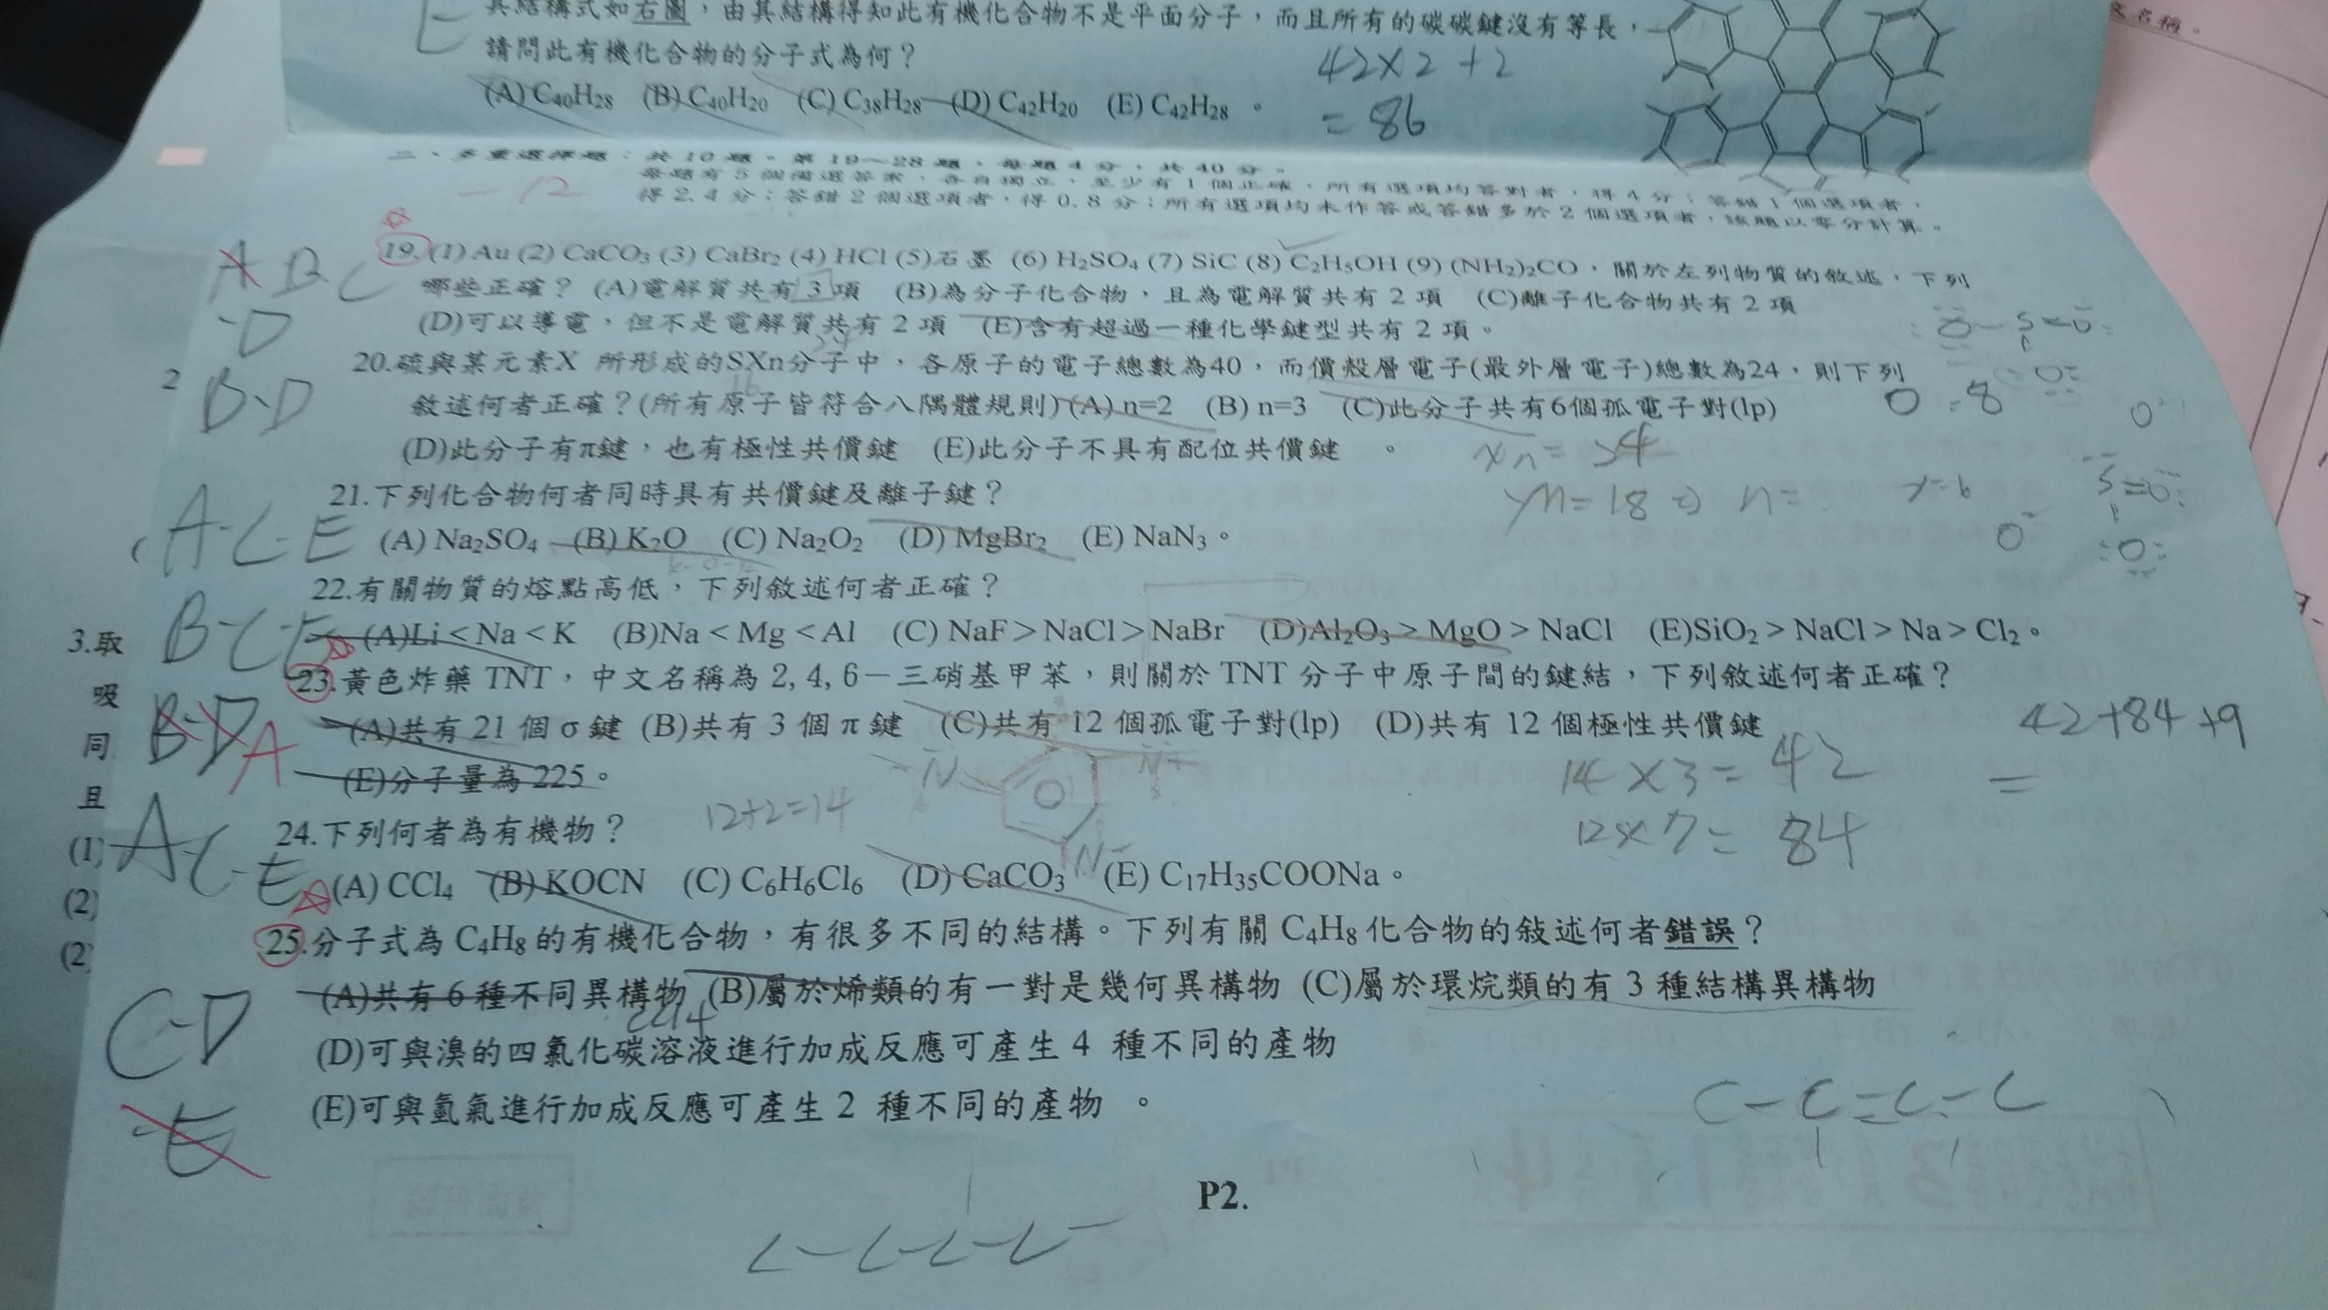 其結構式如右圖，由其結構得知此有機化合物不是平面分子，而且所有的碳碳鍵沒有等長，
請問此有機化合物的分子式為何？
(A) C40H28 (B) C40H20 (C) C38H28 (D) C42H20 (E) C42H28 。
42×2+2
=86
二、多重選擇題：共10題。第19～28題，每題4分，共40分。
每題有5個備選答案，各自獨立，至少有1個正確，所有選項均答對者，得4分；答錯1個選項者，
得2.4分；答錯2個選項者，得0.8分；所有選項均未作答或答錯多於2個選項者，該題以零分計算。
-12
19.(1) Au (2) CaCO3 (3) CaBr2 (4) HCl (5)石墨 (6) H2SO4 (7) SiC (8) C2H5OH (9) (NH2)2CO，關於左列物質的敘述，下列
哪些正確？ (A)電解質共有3項 (B)為分子化合物，且為電解質共有2項 (C)離子化合物共有2項
(D)可以導電，但不是電解質共有2項 (E)含有超過一種化學鍵型共有2項。
A B C
-D
20.硫與某元素X 所形成的SXn分子中，各原子的電子總數為40，而價殼層電子(最外層電子)總數為24，則下列
敘述何者正確？(所有原子皆符合八隅體規則) (A) n=2 (B) n=3 (C)此分子共有6個孤電子對(lp)
(D)此分子有π鍵，也有極性共價鍵 (E)此分子不具有配位共價鍵 。
B-D
O=8
21.下列化合物何者同時具有共價鍵及離子鍵？
(A) Na2SO4 (B) K2O (C) Na2O2 (D) MgBr2 (E) NaN3。
A-C-E
22.有關物質的熔點高低，下列敘述何者正確？
(A)Li＜Na＜K (B)Na＜Mg＜Al (C) NaF＞NaCl＞NaBr (D)Al2O3＞MgO＞NaCl (E)SiO2＞NaCl＞Na＞Cl2。
B-C-E
3.取
23.黃色炸藥 TNT，中文名稱為 2, 4, 6－三硝基甲苯，則關於 TNT 分子中原子間的鍵結，下列敘述何者正確？
吸
(A)共有 21 個 σ 鍵 (B)共有 3 個 π 鍵 (C)共有 12 個孤電子對(lp) (D)共有 12 個極性共價鍵
同
(E)分子量為 225。
且
B-D A
14×3=42
12×7=84
42+84+9
=
12+2=14
24.下列何者為有機物？
(1)
(A) CCl4 (B) KOCN (C) C6H6Cl6 (D) CaCO3 (E) C17H35COONa。
(2)
A-C-E
25.分子式為 C4H8 的有機化合物，有很多不同的結構。下列有關 C4H8 化合物的敍述何者錯誤？
(2)
(A)共有 6 種不同異構物 (B)屬於烯類的有一對是幾何異構物 (C)屬於環烷類的有 3 種結構異構物
CCl4
(D)可與溴的四氯化碳溶液進行加成反應可產生 4 種不同的產物
(E)可與氫氣進行加成反應可產生 2 種不同的產物 。
C-D
-E
C-C=C-C
P2.
C-C-C-C